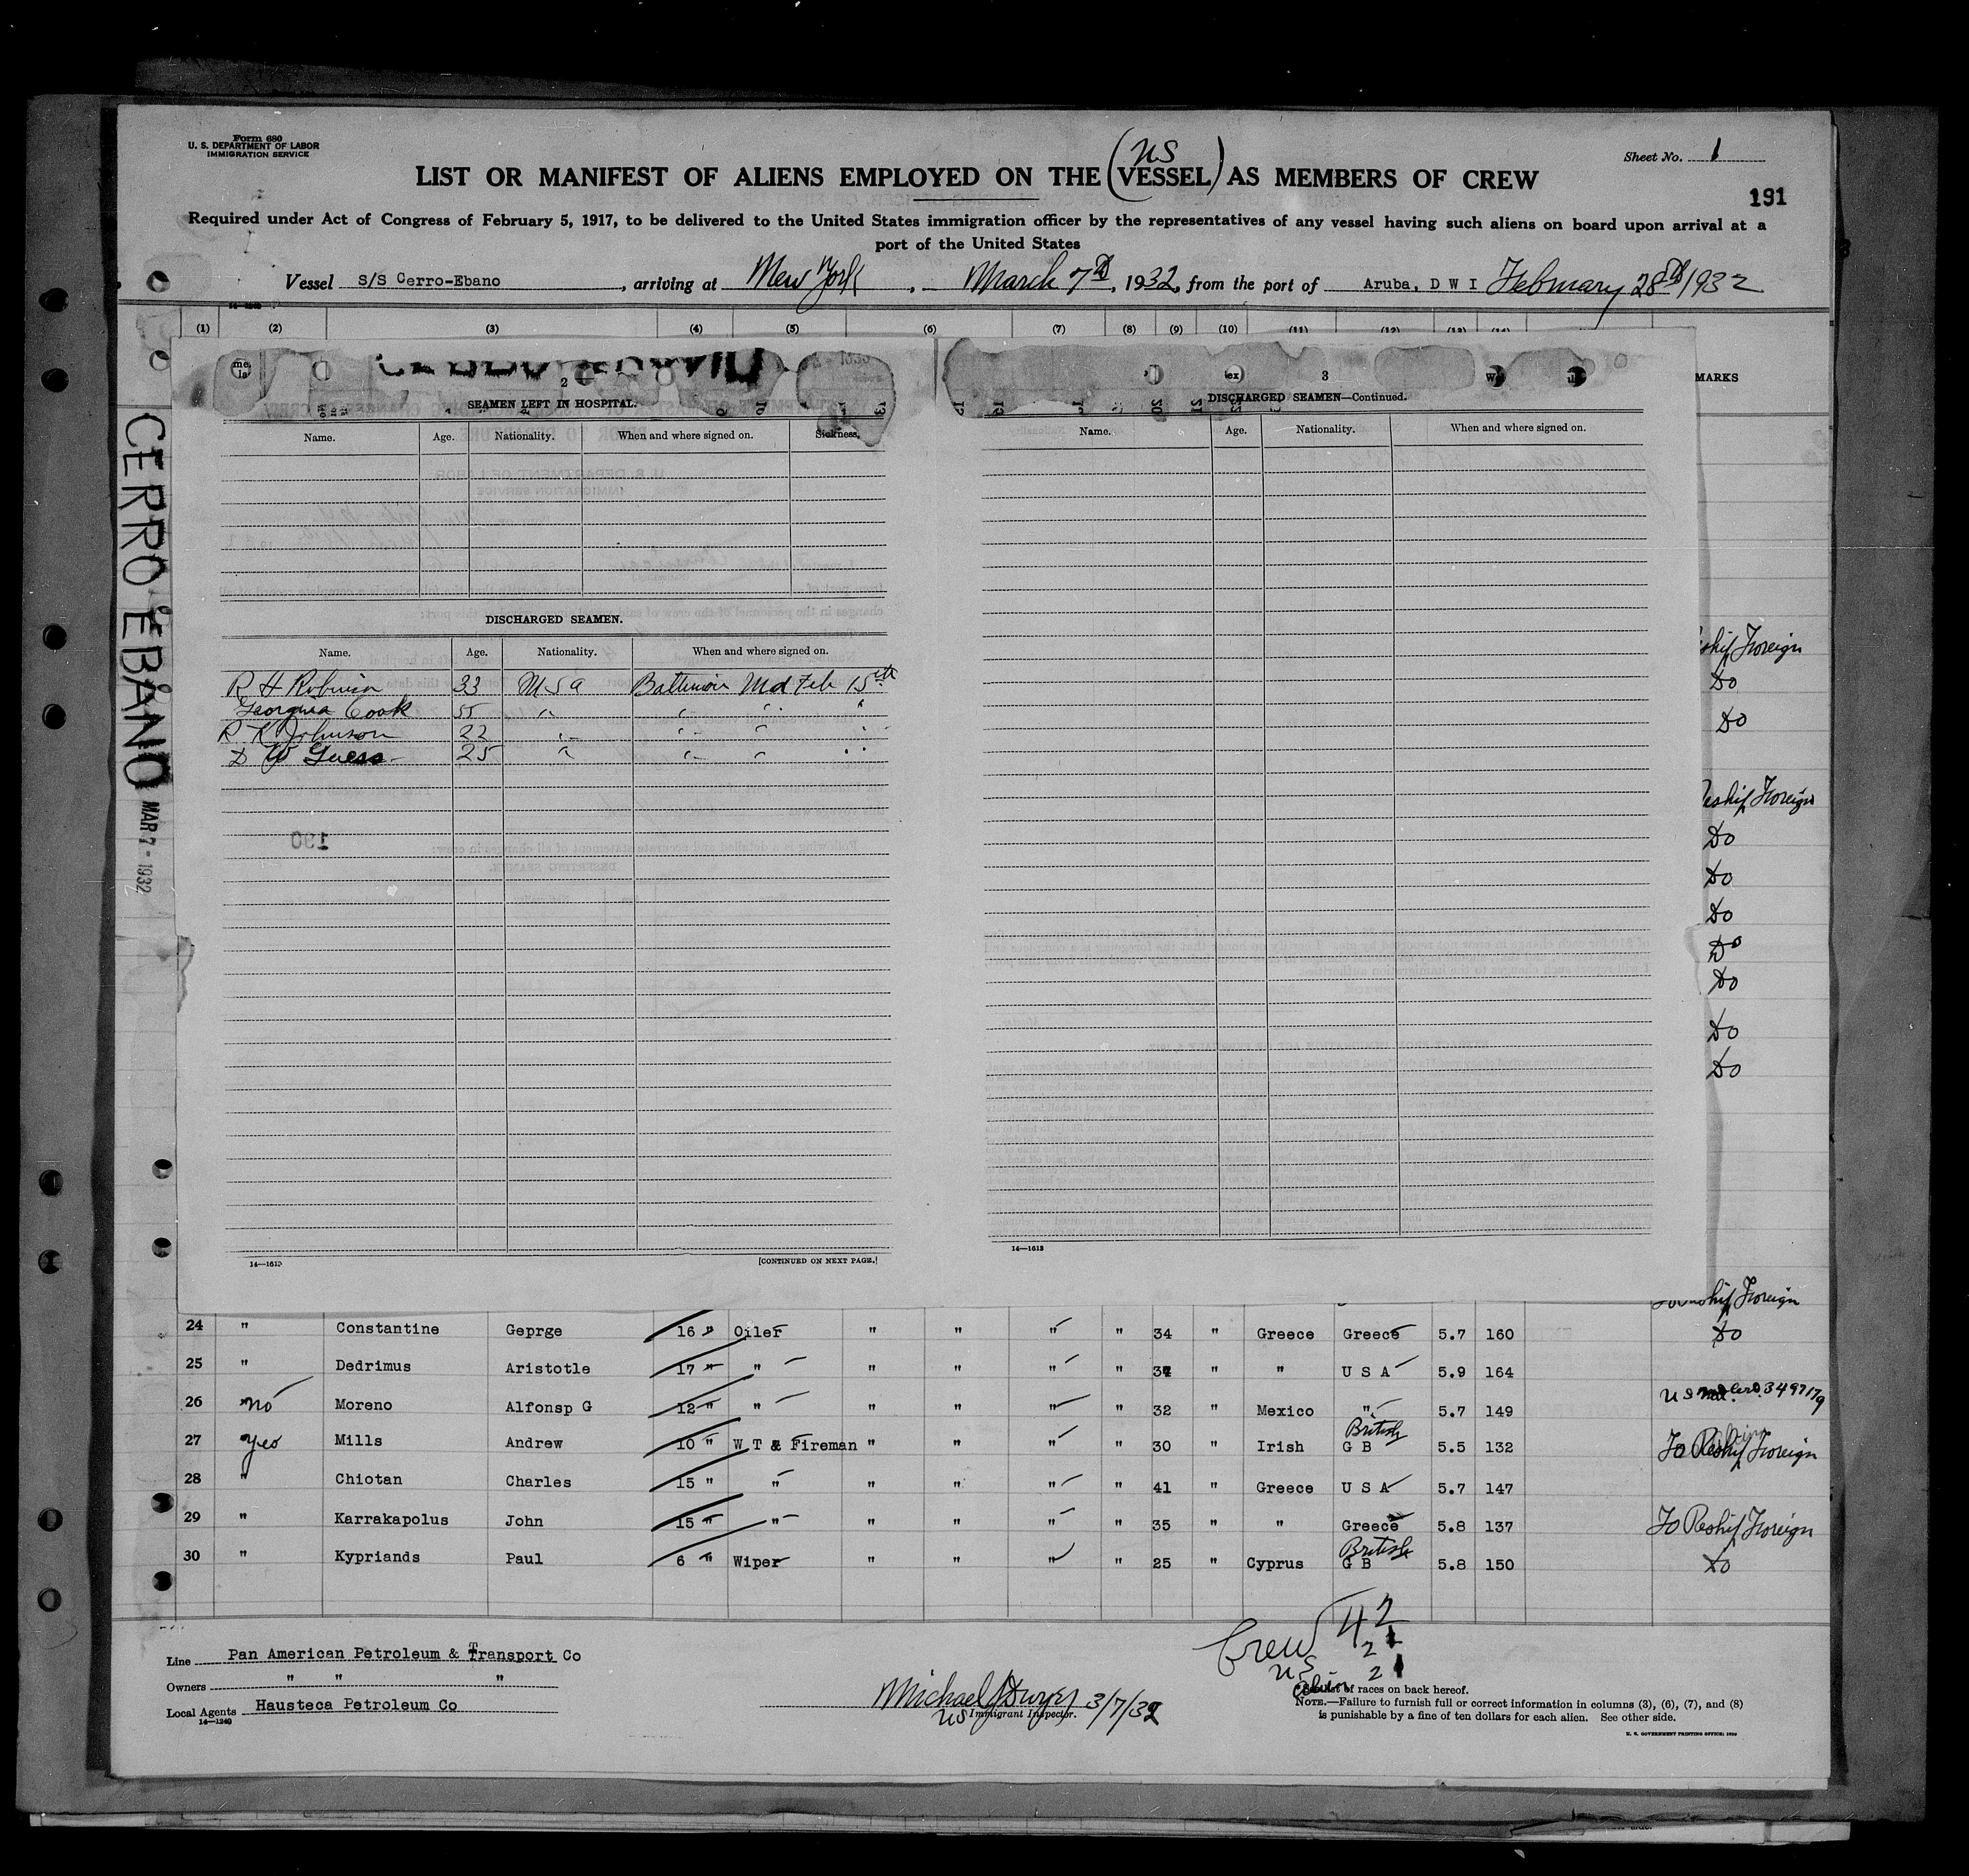 Form 680
U. S. DEPARTMENT OF LABOR
IMMIGRATION SERVICE
Sheet No. 1
US
LIST OR MANIFEST OF ALIENS EMPLOYED ON THE (VESSEL) AS MEMBERS OF CREW
191
Required under Act of Congress of February 5, 1917, to be delivered to the United States immigration officer by the representatives of any vessel having such aliens on board upon arrival at a
port of the United States
Vessel S/S Cerro-Ebano, arriving at New York, March 7th, 1932, from the port of Aruba, D W I February 28th 1932
(1) (2) (3) (4) (5) (6) (7) (8) (9) (10) (11) (12) (13) (14)
MARKS
CERRO EBANO MAR 7 - 1932
2
SEAMEN LEFT IN HOSPITAL.
Name. Age. Nationality. When and where signed on. Sickness.
DISCHARGED SEAMEN.
Name. Age. Nationality. When and where signed on.
R H Robinson 33 U S A Baltimore Md Feb 15th
Georgina Cook 55 " " " "
R K Johnson 22 " " " "
D W Guess 25 " " " "
190
14—1613
[CONTINUED ON NEXT PAGE.]
3
DISCHARGED SEAMEN—Continued.
Name. Age. Nationality. When and where signed on.
14—1613
Reship Foreign
Do
Do
Reship Foreign
Do
Do
Do
Do
Do
Do
Do
To Reship Foreign
24 " Constantine Geprge 16 " Oiler " " " " 34 " Greece Greece 5.7 160 Do
25 " Dedrimus Aristotle 17 " " " " " " 34 " " U S A 5.9 164
26 no Moreno Alfonsp G 12 " " " " " " 32 " Mexico " 5.7 149 3497179
27 yes Mills Andrew 10 " W T & Fireman " " " " 30 " Irish British G B 5.5 132 To Reship Foreign
28 " Chiotan Charles 15 " " " " " " 41 " Greece U S A 5.7 147
29 " Karrakapolus John 15 " " " " " " 35 " " Greece 5.8 137 To Reship Foreign
30 " Kypriands Paul 6 " Wiper " " " " 25 " Cyprus British G B 5.8 150 Do
Crew 42
US 21
Alien 21
Line Pan American Petroleum & Transport Co
Owners " " "
Local Agents Hausteca Petroleum Co
14—1240
Michael J Dwyer 3/7/32
US Immigrant Inspector.
list of races on back hereof.
NOTE.—Failure to furnish full or correct information in columns (3), (6), (7), and (8)
is punishable by a fine of ten dollars for each alien. See other side.
U. S. GOVERNMENT PRINTING OFFICE: 1930